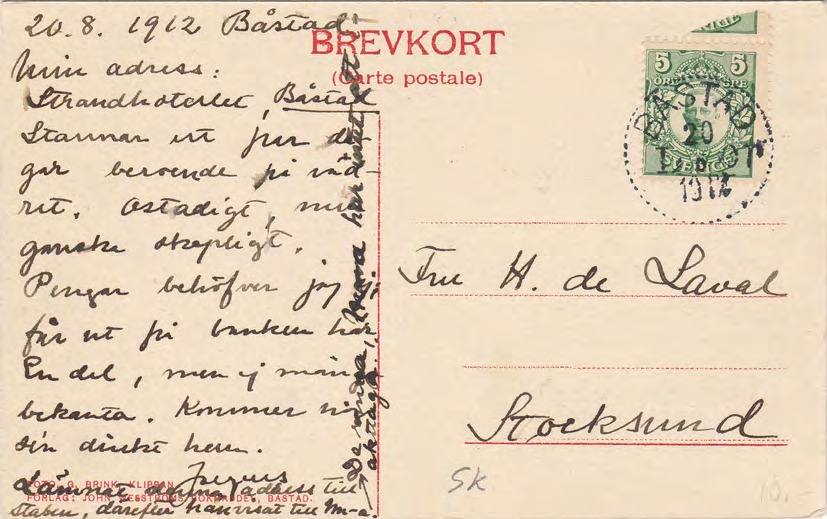 20.8. 1912 Båstad
Min adress:
Strandhotellet, Båstad
Stannar ett par da-
gar beroende på väd-
ret. Ostadigt, men
ganska skapligt.
Pengar behöfver jag ej,
får ut på banken här.
En del, men ej många
bekanta. Kommer
sin direkt hem.
Lämnat denna adress till
staben, därefter hänvisat till
BREVKORT
(Carte postale)
5 5
BÅSTAD
20
1912
Fru H. de Laval
Stocksund
SK
10.-
FOTO: G. BRINK, KLIPPAN.
FÖRLAG: JOHN BOKHANDEL, BÅSTAD.